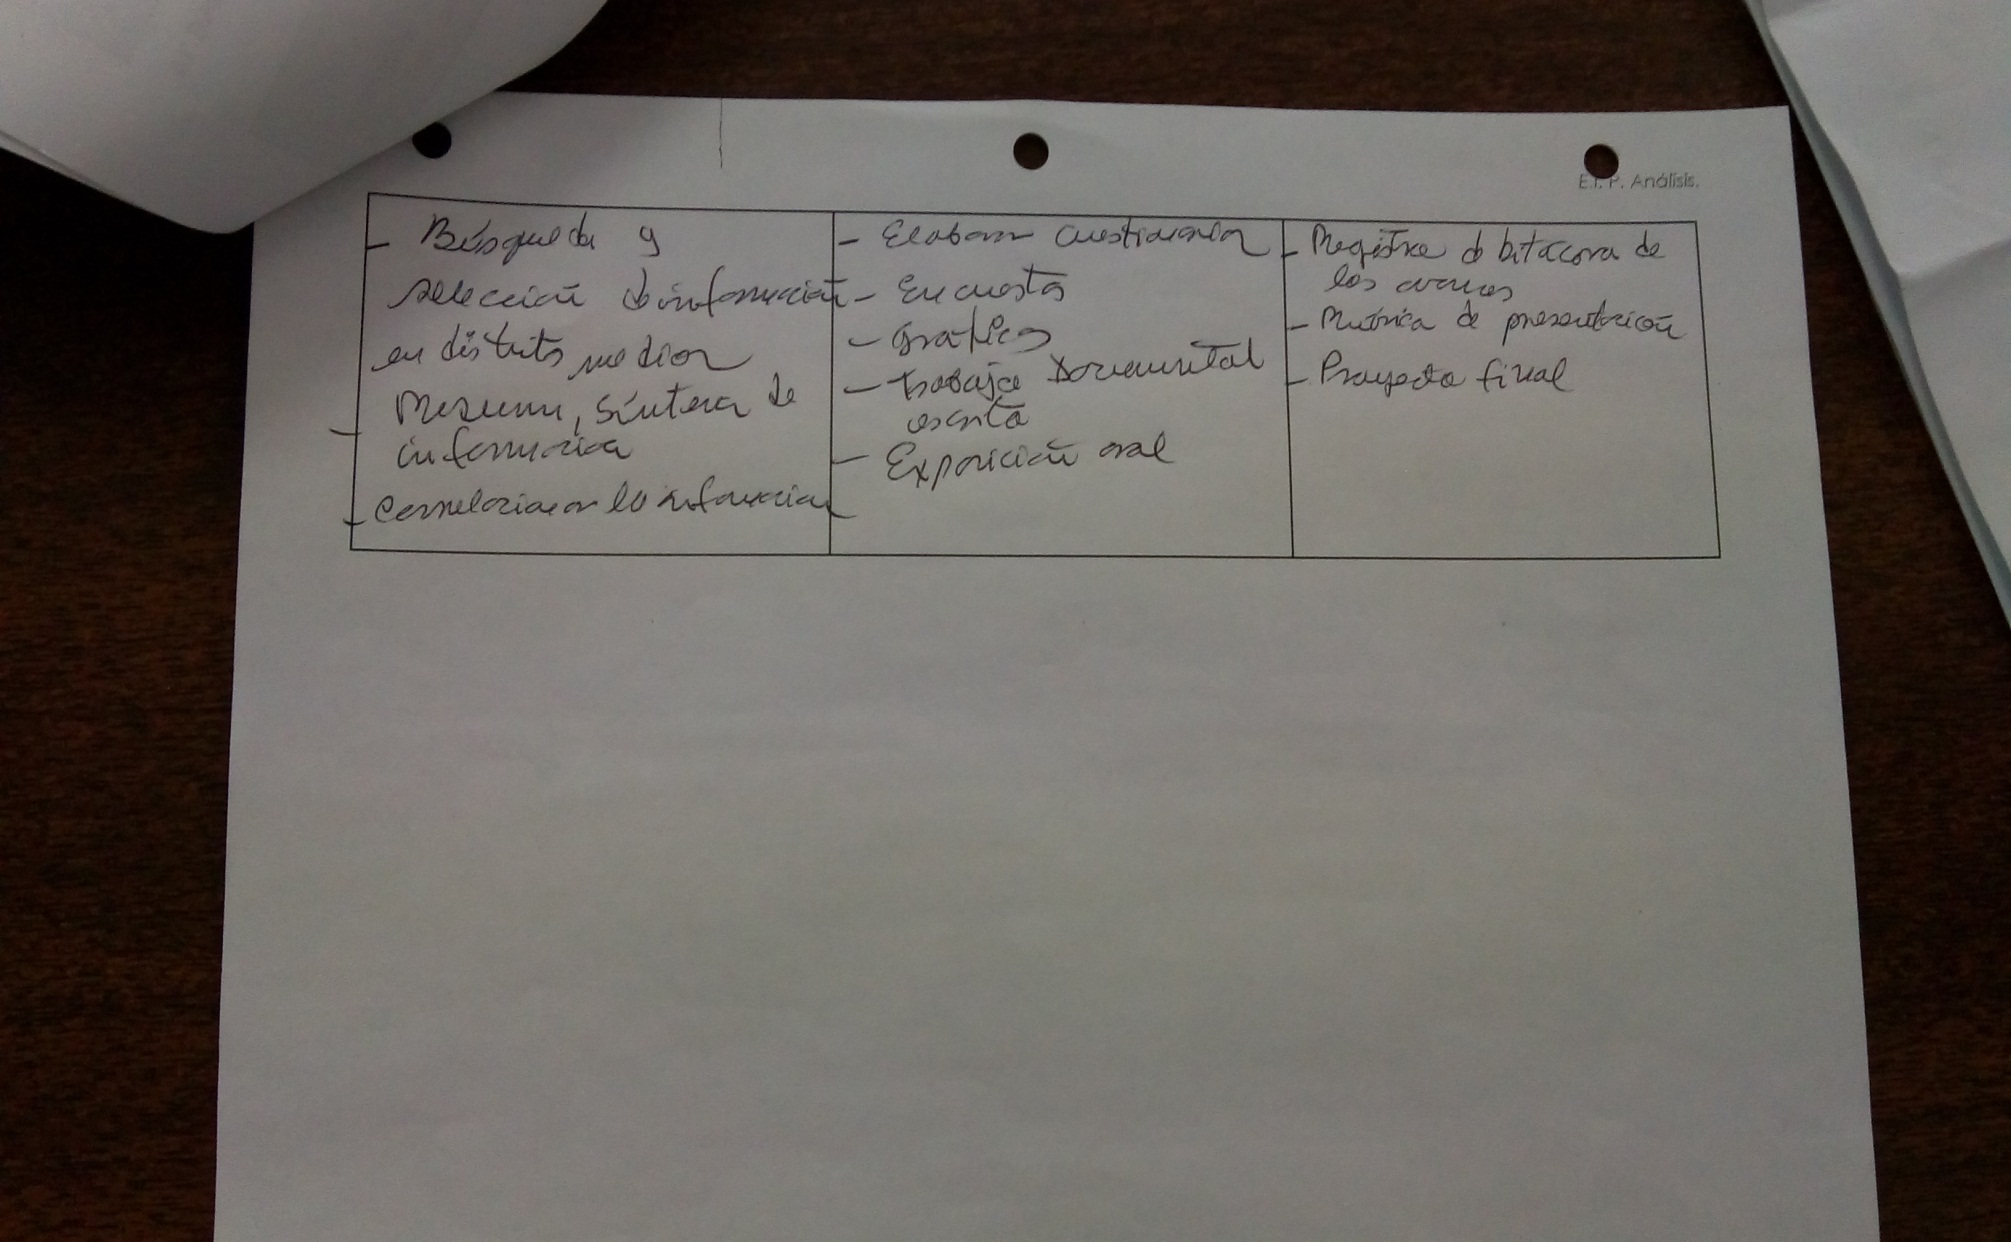 E.I. P. Análisis.
- Búsqueda y
selección d información
en distints medios
- Resumen, síntesis de
información
- Correlacionar la información
- Elaborar cuestionarios
- Encuestas
- Gráficos
- trabajo Documental
escrito
- Exposición oral
- Registro d bitácora de
los avances
- Rúbrica de presentación
- Proyecto final